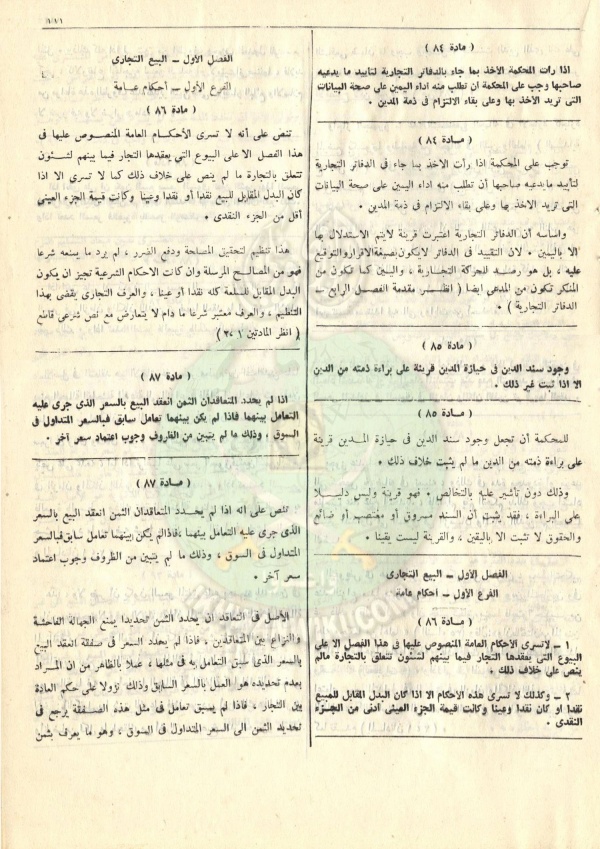 ٧٧١
( مادة ٨٤ )
اذا رأت المحكمة الأخذ بما جاء بالدفاتر التجارية لتأييد ما يدعيه
صاحبها وجب على المحكمة ان تطلب منه اداء اليمين على صحة البيانات
التى تريد الاخذ بها وعلى بقاء الالتزام فى ذمة المدين .
( مادة ٨٤ )
توجب على المحكمة اذا رأت الأخذ بما جاء فى الدفاتر التجارية
لتأييد مايدعيه صاحبها أن تطلب منه اداء اليمين على صحة البيانات
التى تريد الاخذ بها وعلى بقاء الالتزام فى ذمة المدين .
واساسه أن الدفاتر التجارية اعتبرت قرينة لايتم الاستدلال بها
الا باليمين . لان التقييد فى الدفاتر لايكون بصيغة الاقرار والتوقيع
عليه ، بل هو رصد للحركة التجارية ، واليمين كما تكون من
المنكر تكون من المدعى ايضا ( انظر مقدمة الفصل الرابع –
الدفاتر التجارية ) .
( مادة ٨٥ )
وجود سند الدين فى حيازة المدين قرينة على براءة ذمته من الدين
الا اذا ثبت غير ذلك .
( مادة ٨٥ )
للمحكمة أن تجعل وجود سند الدين فى حيازة المدين قرينة
على براءة ذمته من الدين ما لم يثبت خلاف ذلك .
وذلك دون تأشير عليه بالتخالص . فهو قرينة وليس دليلا
على البراءة ، فقد يثبت أن السند مسروق أو مغتصب أو ضائع
والحقوق لا تثبت الا باليقين ، والقرينة ليست يقينا .
الفصل الأول – البيع التجارى
الفرع الأول – احكام عامة
( مادة ٨٦ )
١ – لاتسرى الأحكام العامة المنصوص عليها فى هذا الفصل الا على
البيوع التى يعقدها التجار فيما بينهم لشئون تتعلق بالتجارة مالم
ينص على خلاف ذلك .
٢ – وكذلك لا تسرى هذه الأحكام الا اذا كان البدل المقابل للمبيع
نقدا او كان نقدا وعينا وكانت قيمة الجزء العينى أدنى من الجزء
النقدى .
الفصل الأول – البيع التجارى
الفرع الأول – أحكام عامة
( مادة ٨٦ )
تنص على أنه لا تسرى الأحكام العامة المنصوص عليها فى
هذا الفصل الا على البيوع التى يعقدها التجار فيما بينهم لشئون
تتعلق بالتجارة ما لم ينص على خلاف ذلك كما لا تسرى الا اذا
كان البدل المقابل للبيع نقدا أو نقدا وعينا وكانت قيمة الجزء العينى
أقل من الجزء النقدى .
هذا تنظيم لتحقيق المصلحة ودفع الضرر ، لم يرد ما يمنعه شرعا
فهو من المصالح المرسلة وان كانت الاحكام الشرعية تجيز ان يكون
البدل المقابل للسلعة كله نقدا أو عينا ، والعرف التجارى يقضى بهذا
التنظيم ، والعرف معتبر شرعا ما دام لا يتعارض مع نص شرعى قاطع
( انظر المادتين ١ ، ٢ )
( مادة ٨٧ )
اذا لم يحدد المتعاقدان الثمن انعقد البيع بالسعر الذى جرى عليه
التعامل بينهما فاذا لم يكن بينهما تعامل سابق فبالسعر المتداول فى
السوق ، وذلك ما لم يتبين من الظروف وجوب اعتماد سعر آخر .
( مادة ٨٧ )
تنص على أنه اذا لم يحدد المتعاقدان الثمن انعقد البيع بالسعر
الذى جرى عليه التعامل بينهما ، فاذالم يكن بينهما تعامل سابق فبالسعر
المتداول فى السوق ، وذلك ما لم يتبين من الظروف وجوب اعتماد
سعر آخر .
الأصل فى التعاقد ان يحدد الثمن تحديدا يمنع الجهالة الفاحشة
والنزاع بين المتعاقدين ، فاذا لم يحدد السعر فى صفقة انعقد البيع
بالسعر الذى سبق التعامل به فى مثلها ، عملا بالظاهر من ان المراد
بعدم تحديده هو العمل بالسعر السابق وذلك نزولا على حكم العادة
بين التجار ، فاذا لم يسبق تعامل فى مثل هذه الصفقة يرجع فى
تحديد الثمن الى السعر المتداول فى السوق ، وهو ما يعرف بثمن